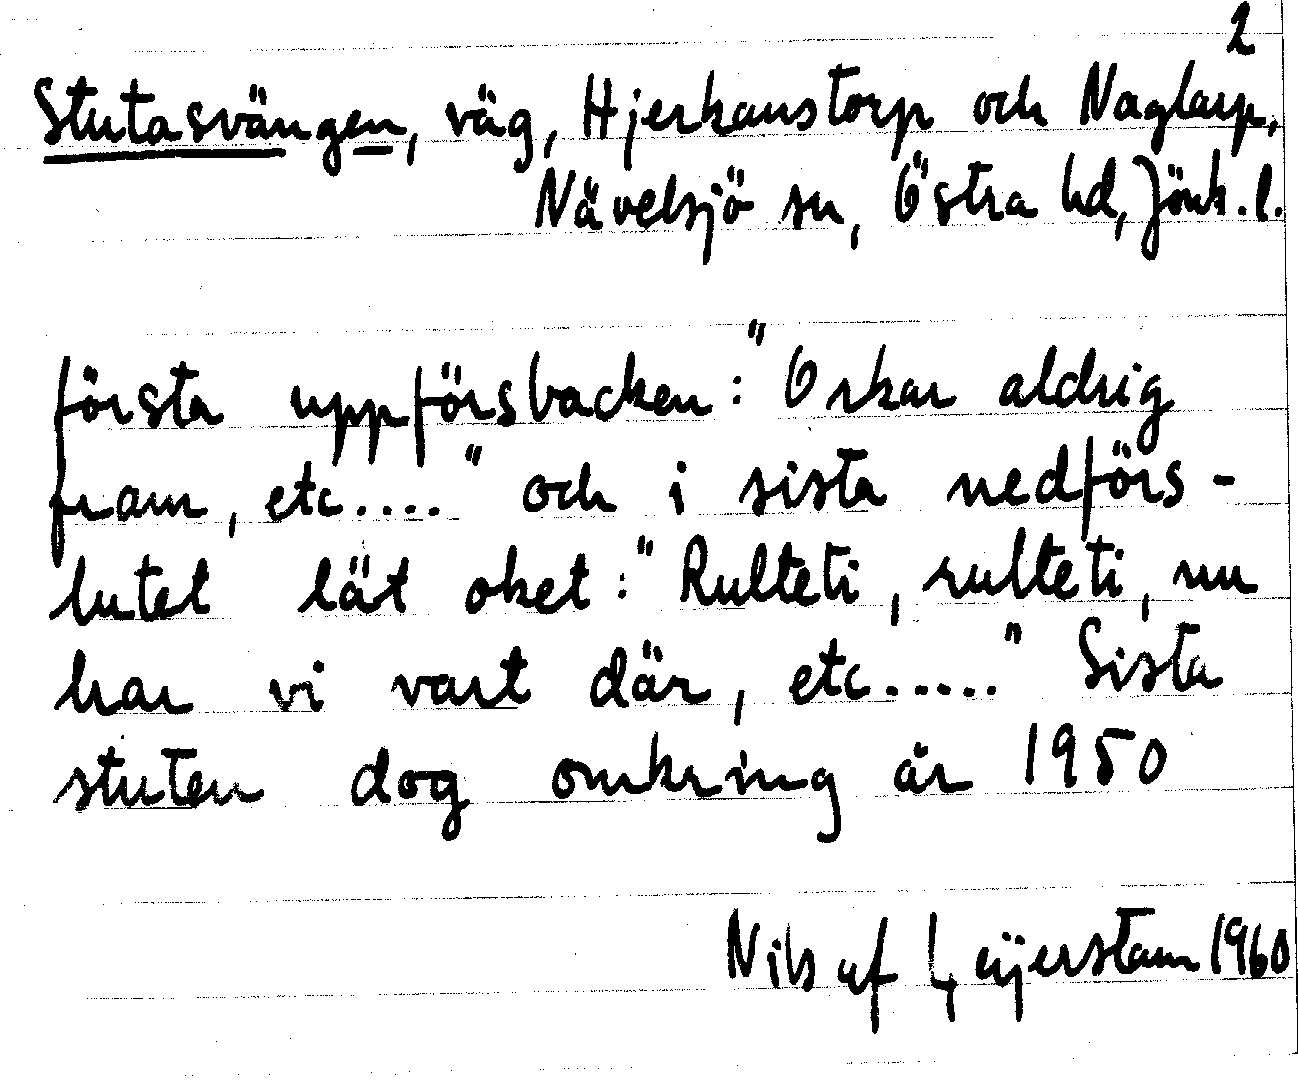 2
Stutasvängen, väg, Hjerkanstorp och Naglarp,
Nävelsjö sn, Östra hd, Jönk. l.
första uppförsbacken: "Orkar aldrig
fram, etc...." och i sista nedförs-
lutet lät oket: "Rulteti, rulteti, nu
har vi vart där, etc....." Sista
stuten dog omkring år 1950
Nils uf Geijerstam 1960